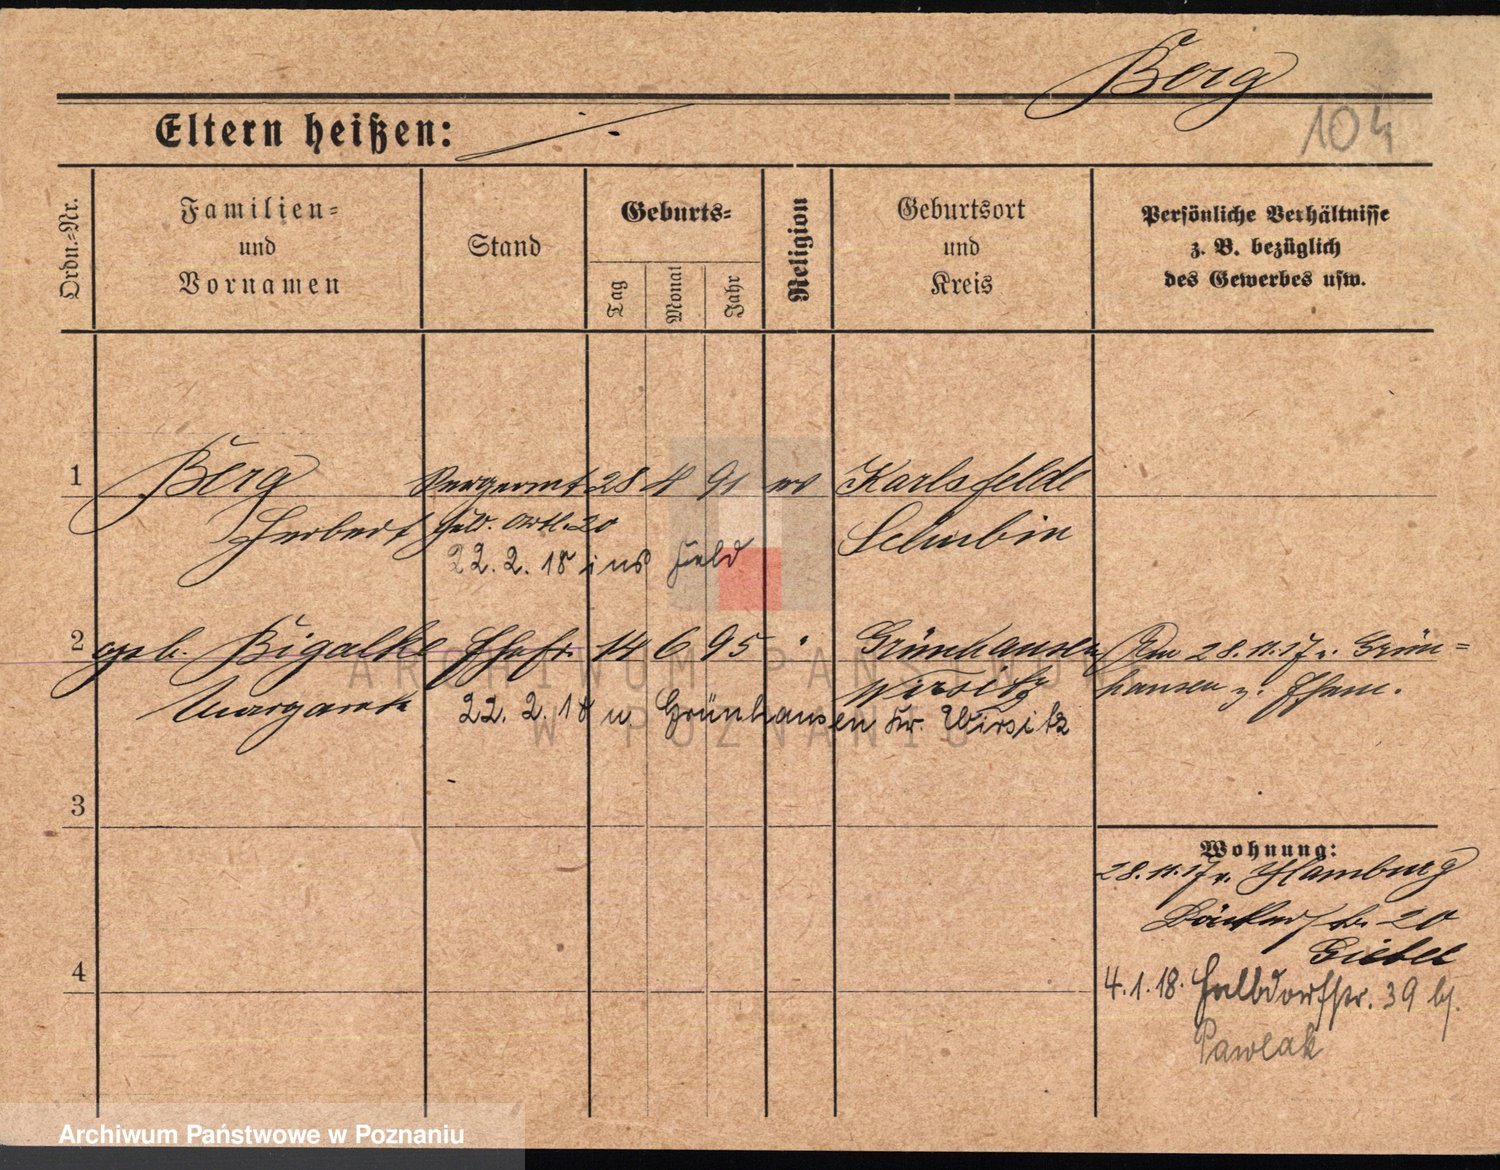 Berg
104
Eltern heißen:
Ordn.-Nr.
Familien-
und
Vornamen
Stand
Geburts-
Tag
Monat
Jahr
Religion
Geburtsort
und
Kreis
Persönliche Verhältnisse
z. B. bezüglich
des Gewerbes usw.
1 Berg 28 4 91 ev Karlsfelde
Herbert Feld. Artl. 20 Schubin
22.2.18 ins Feld
2 geb. Bigalke Ehefr. 14 6 95 Grünhausen 28.11.17 v. Grün-
Margarete Wirsitz hausen z. Ehem.
22.2.18 n Grünhausen Kr. Wirsitz
3
4
Wohnung:
28.11.17 v. Hamburg
20
Giebel
4.1.18. Halbdorfstr. 39 bj.
Pawlak
ARCHIWUM PAŃSTWOWE
W POZNANIU
Archiwum Państwowe w Poznaniu